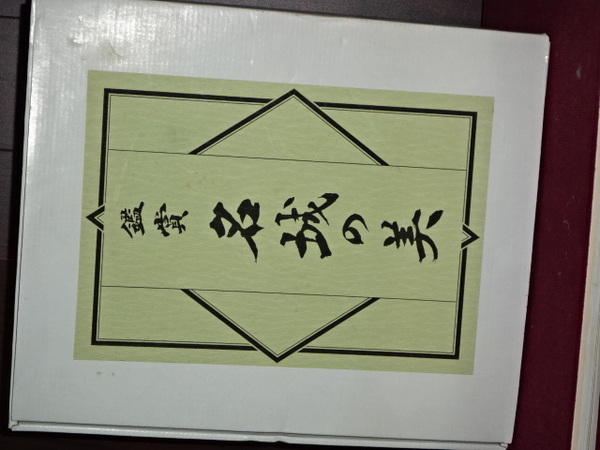 鑑賞 名城の美